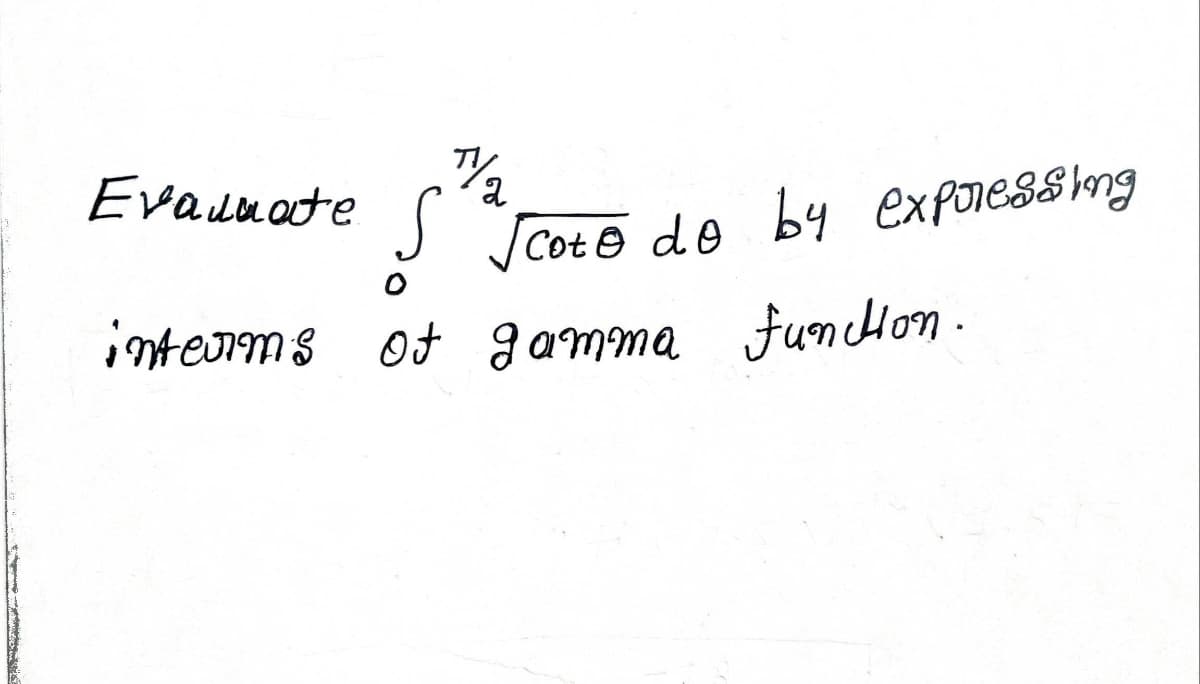 Evaluate ∫₀^{π/2} √cotθ dθ by expressing
interms of gamma function.